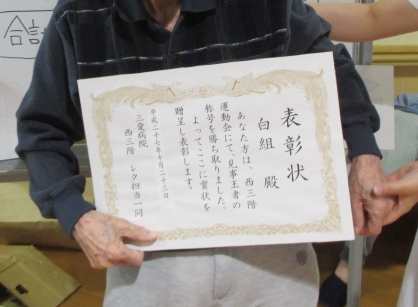 合計
表彰状
白組 殿
あなた方は、西三階
運動会にて、見事王者の
称号を勝ち取りました。
よってここに賞状を
贈呈し表彰します。
平成二十七年十月二十三日
三愛病院
西三階 レク担当一同